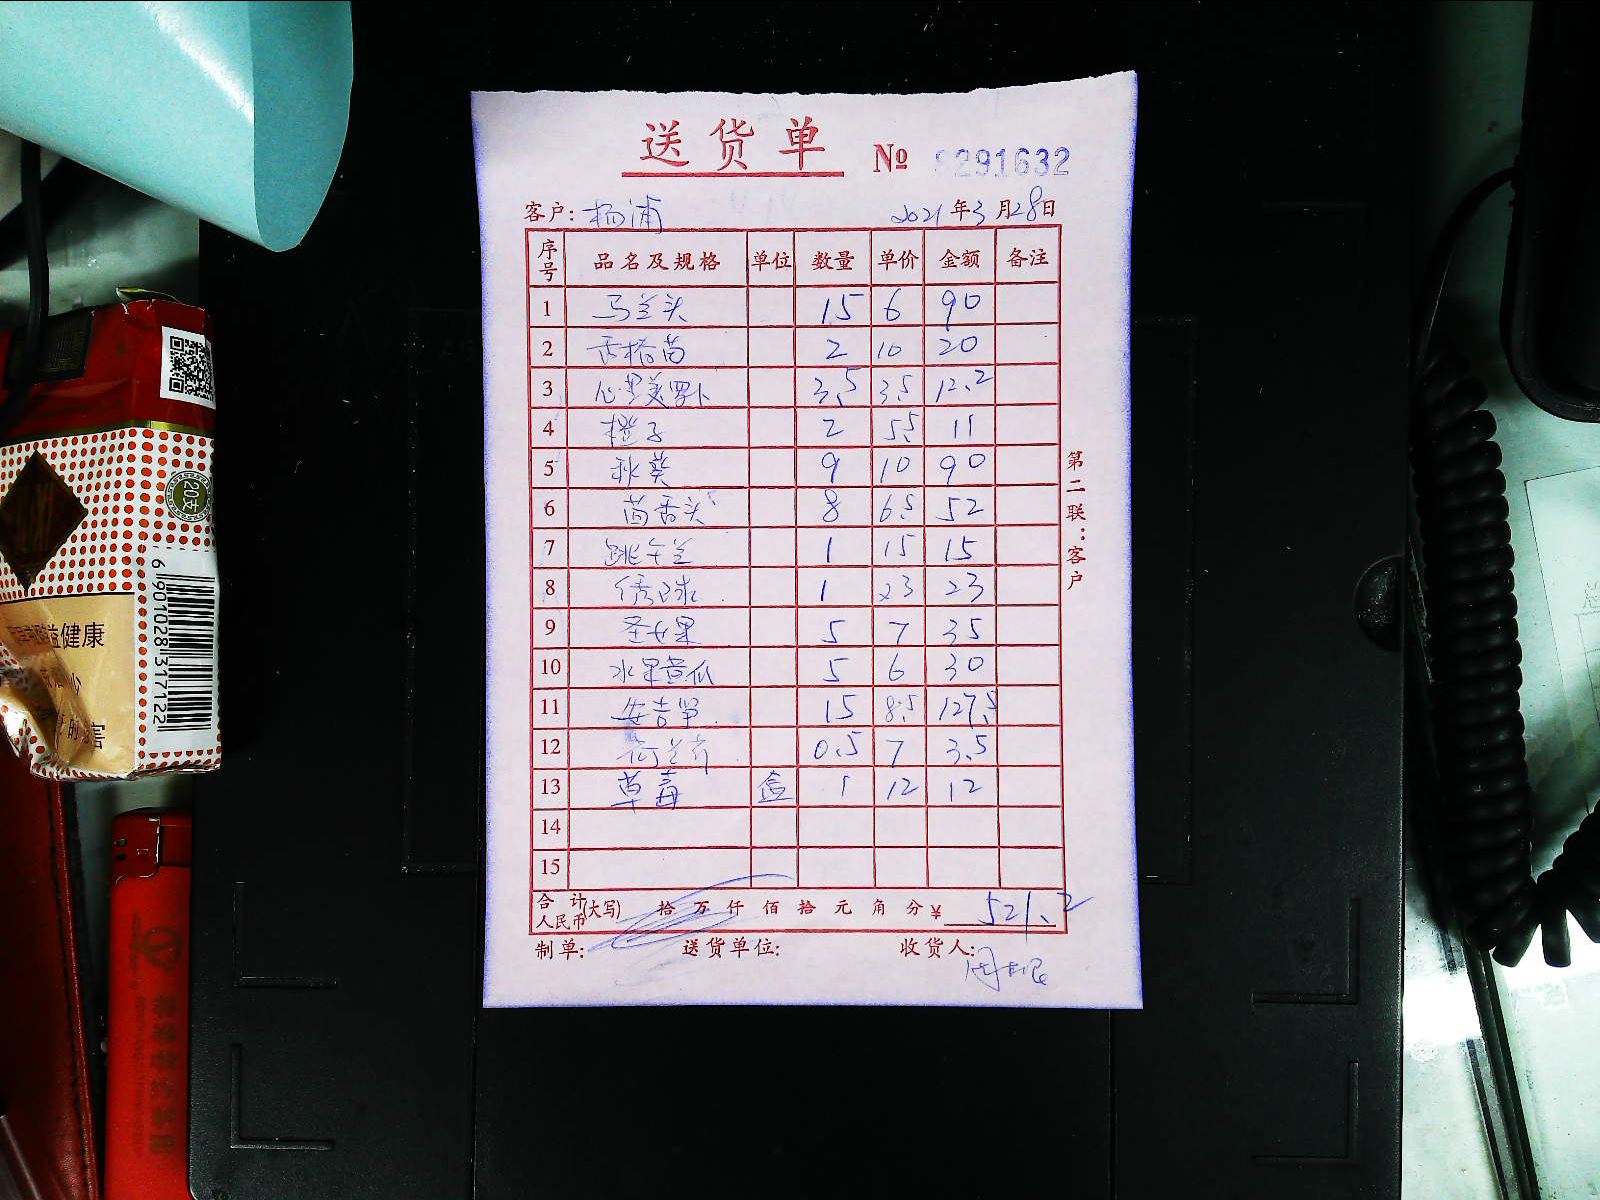 送货单 № 8291632
客户: 杨浦 2021年3月28日
序号 品名及规格 单位 数量 单价 金额 备注
1 马兰头 15 6 90
2 2 10 20
3 心里美罗卜 3.5 3.5 12.2
4 橙子 2 5.5 11
5 秋葵 9 10 90
6 茴香头 8 6.5 52
7 跳舞兰 1 15 15
8 绣球 1 23 23
9 圣女果 5 7 35
10 水果黄瓜 5 6 30
11 安吉笋 15 8.5 127.5
12 荷兰芹 0.5 7 3.5
13 草莓 盒 1 12 12
14
15
合计人民币(大写) 拾 万 仟 佰 拾 元 角 分 ¥ 521.2
制单: 送货单位: 收货人:
第二联:客户
20支
健康
6 901028 317122